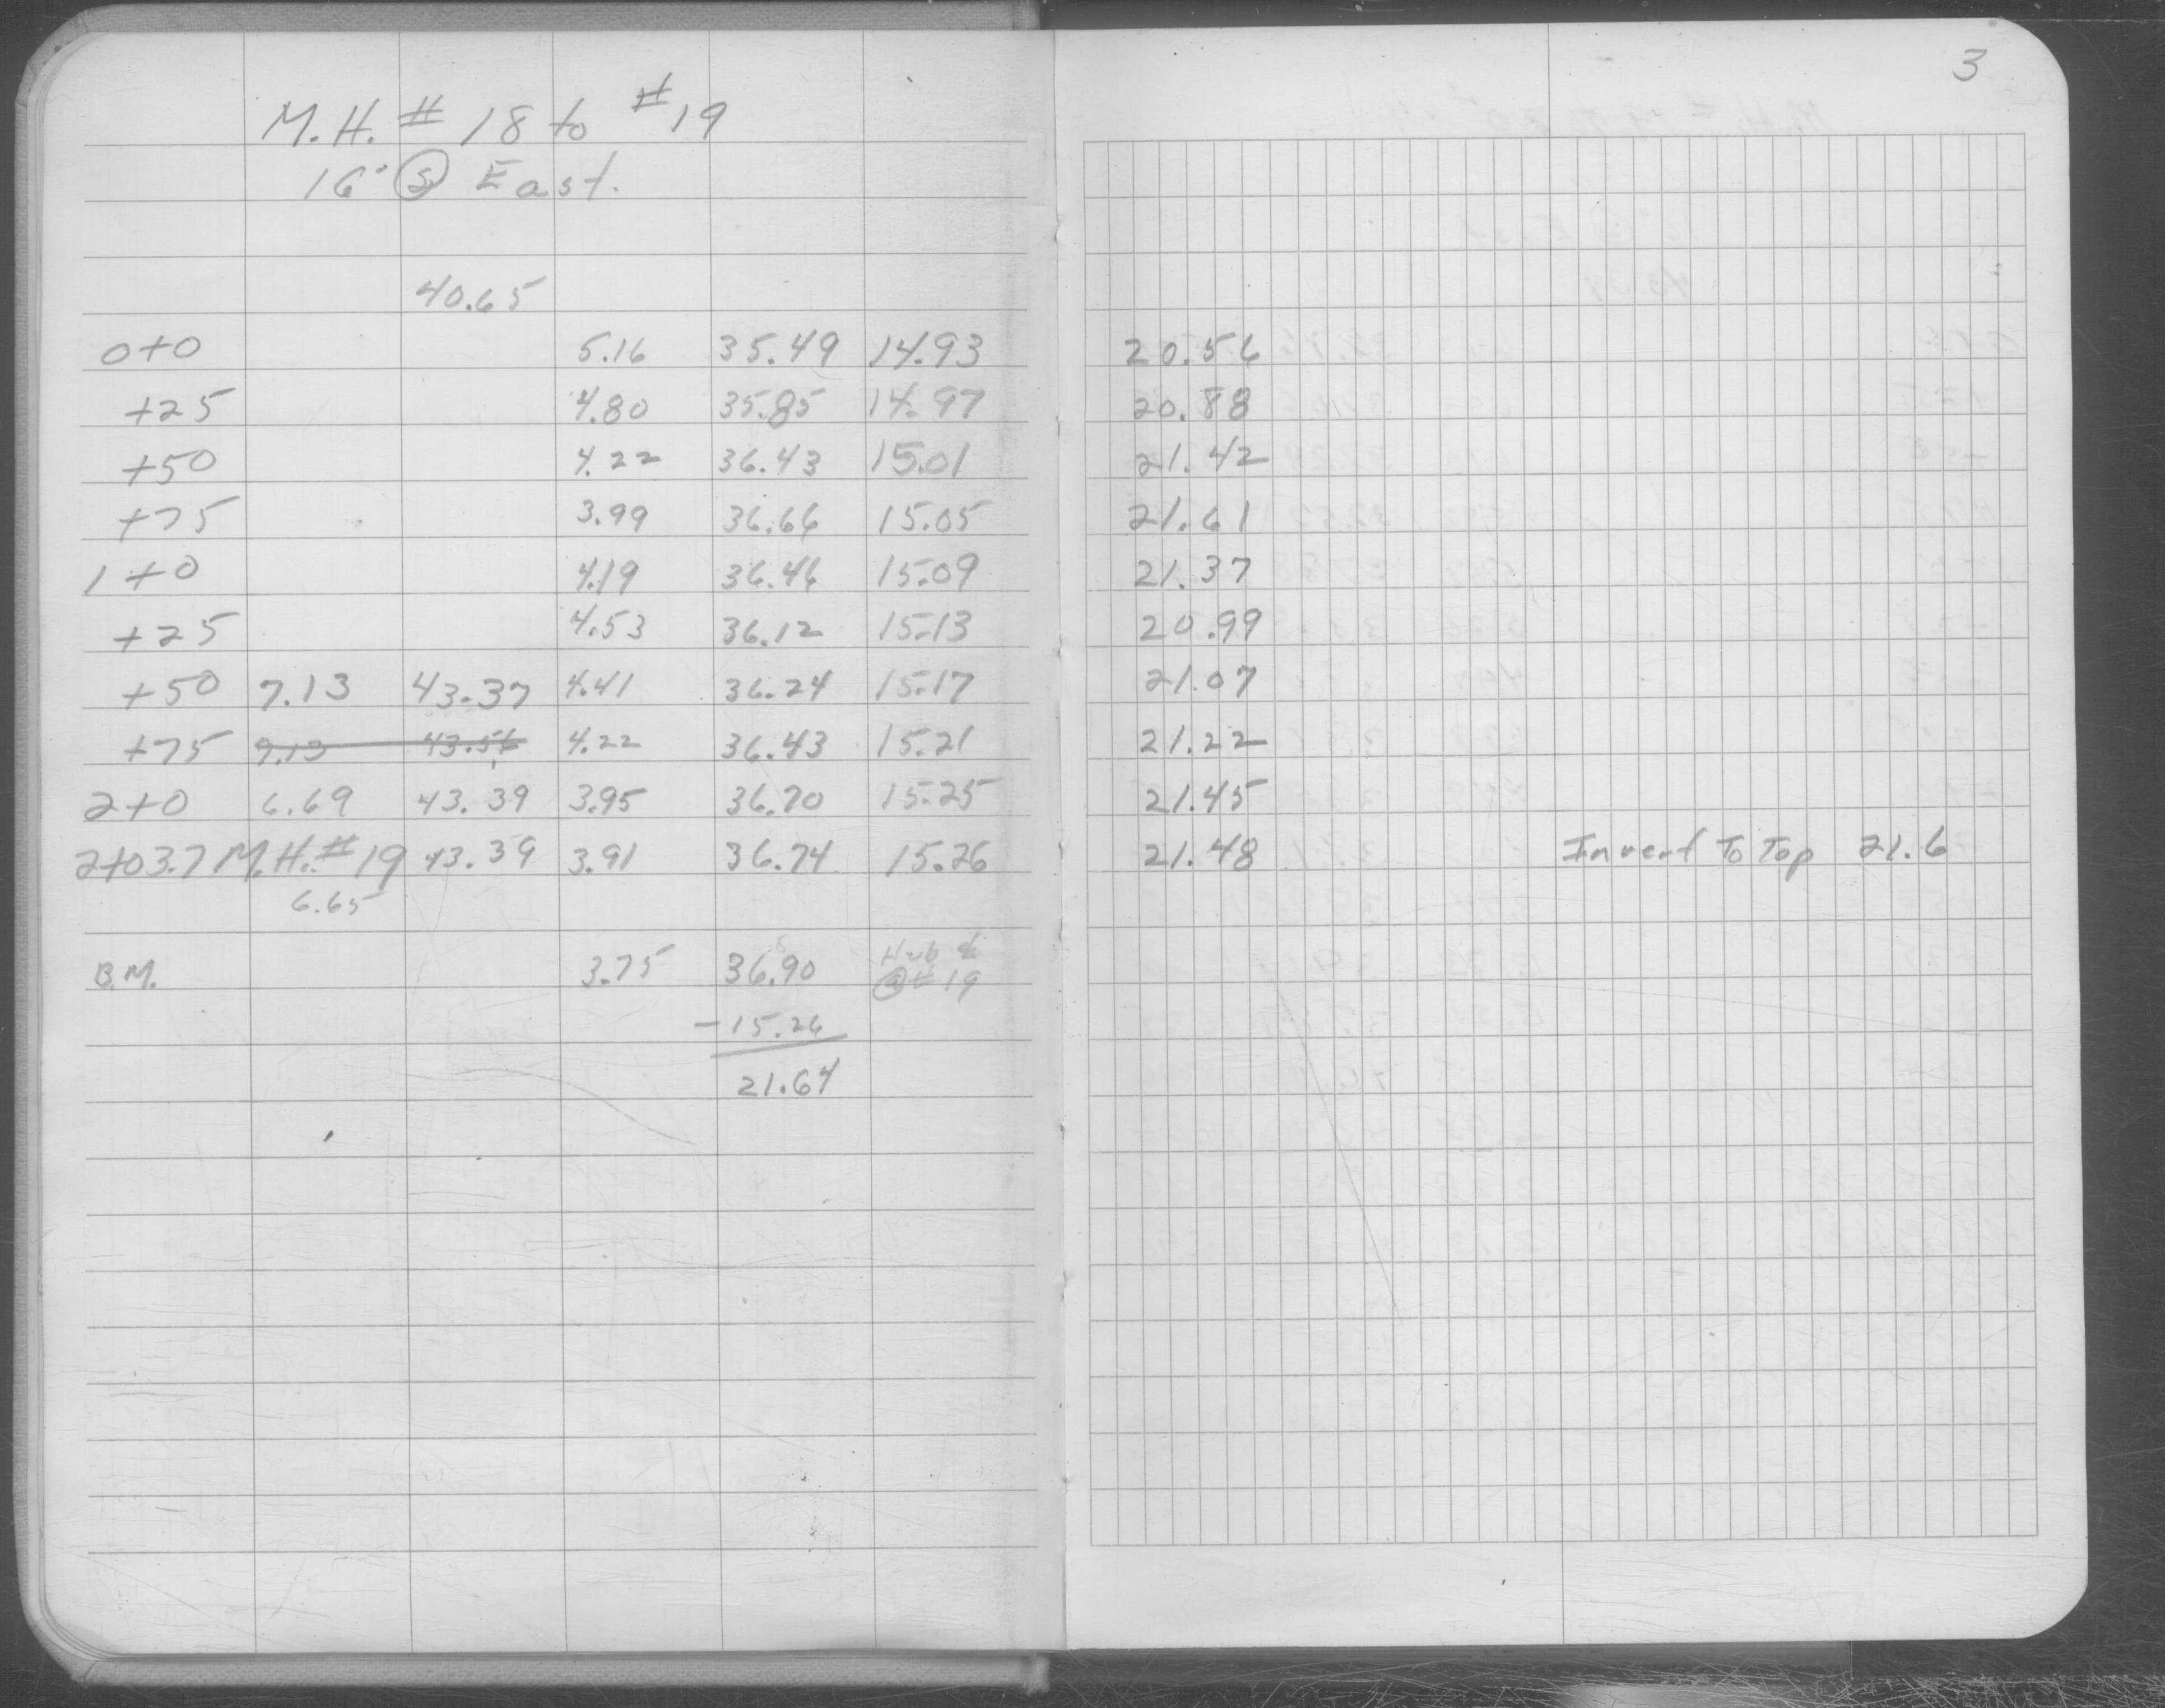 3
M.H. # 18 to #19
16' Ⓢ East.
40.65
0+0 5.16 35.49 14.93 20.56
+25 4.80 35.85 14.97 20.88
+50 4.22 36.43 15.01 21.42
+75 3.99 36.66 15.05 21.61
1+0 4.19 36.46 15.09 21.37
+25 4.53 36.12 15.13 20.99
+50 7.13 43.37 4.41 36.24 15.17 21.07
+75 7.13 43.56 4.22 36.43 15.21 21.22
2+0 6.69 43.39 3.95 36.70 15.25 21.45
2+03.7 M.H.#19 43.39 3.91 36.74 15.26 21.48 Invert To Top 21.6
6.65
B.M. 3.75 36.90 Hub
@ # 19
-15.26
21.64